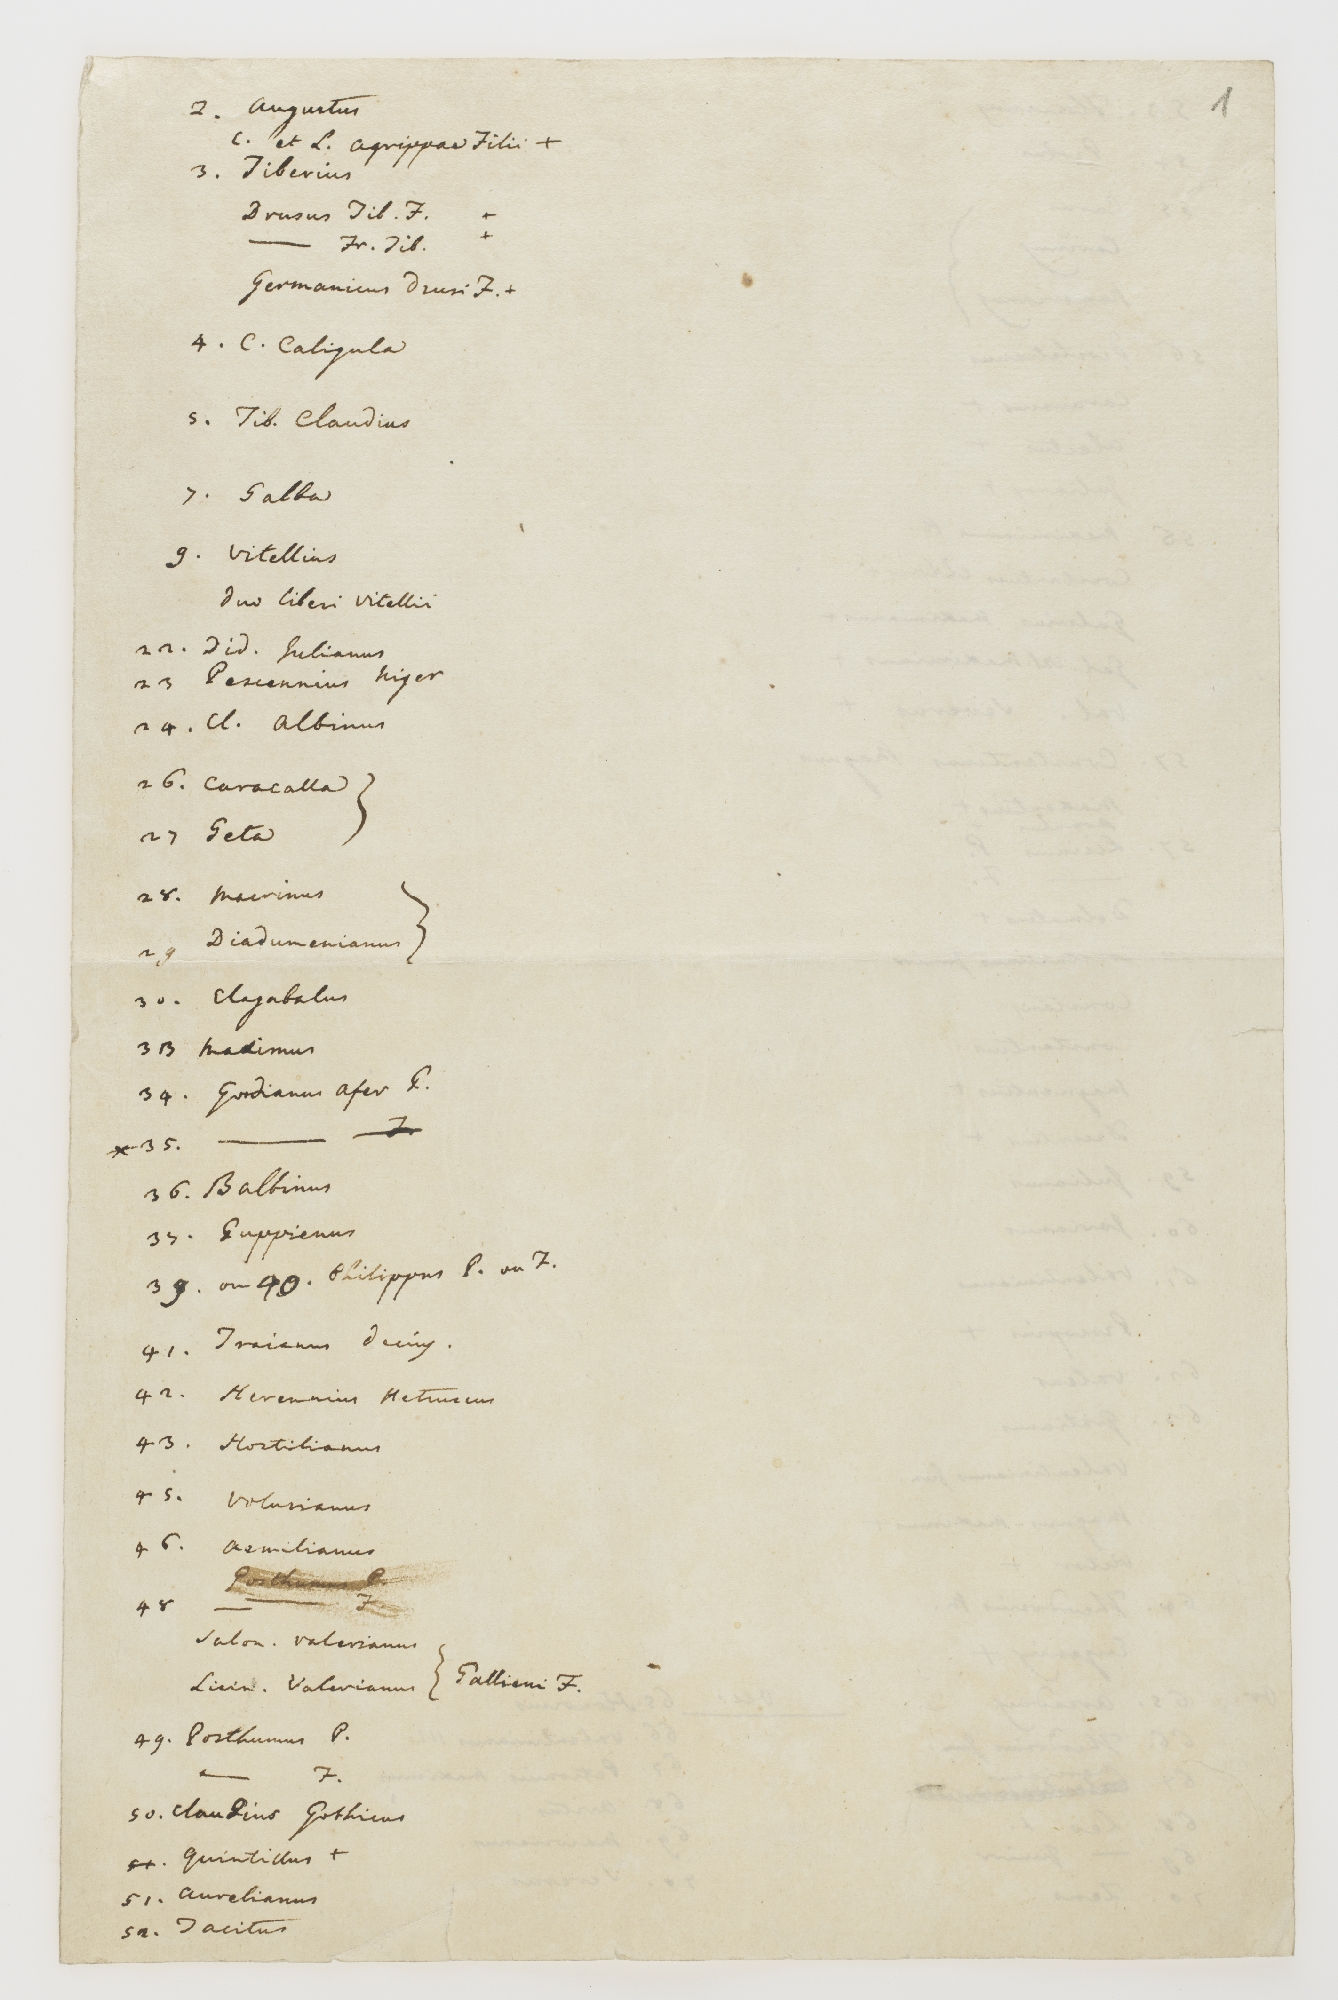 1
2. Augustus
C. et L. Agrippae Filii +
3. Tiberius
Drusus Tib. F. +
—— Fr. Tib. +
Germanicus Drusi F. +
4. C. Caligula
5. Tib. Claudius
7. Galba
9. Vitellius
duo liberi Vitellii
22. Did. Julianus
23 Pescennius Niger
24. Cl. Albinus
26. Caracalla }
27 Geta
28. Macrinus }
29 Diadumenianus
30. Elagabalus
33 Maximus
34. Gordianus Afer P.
* 35. —— F.
36. Balbinus
37. Puppienus
39. ou 40. Philippus P. ou F.
41. Traianus Decius.
42. Herennius Hetruscus
43. Hostilianus
45. Volusianus
46. Aemilianus
Posthumus P.
48 —— F.
Salon. Valerianus
Licin. Valerianus } Gallieni F.
49. Posthumus P.
—— F.
50. Claudius Gothicus
51. Quintillus +
51. Aurelianus
52. Tacitus